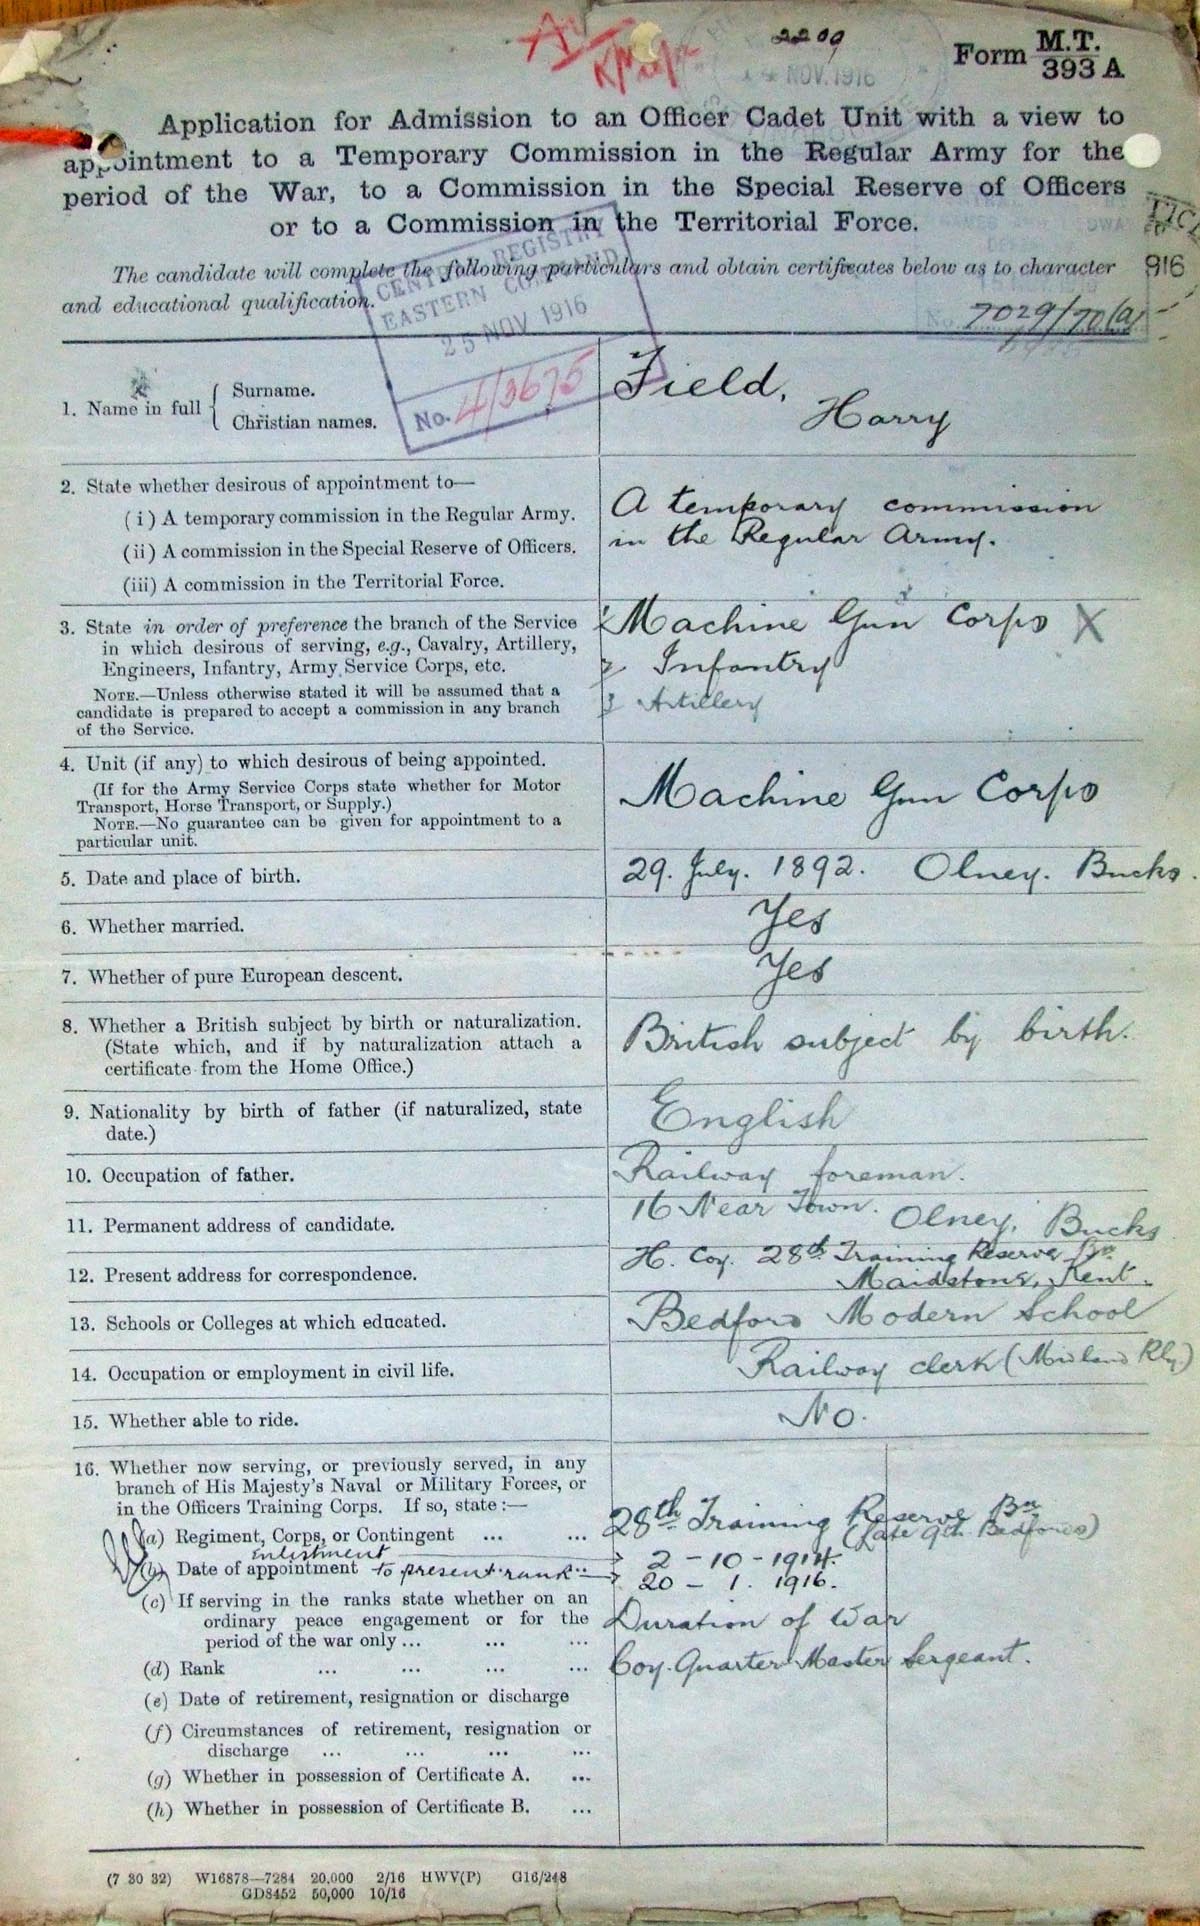 2209
Form M.T.
393 A
14 NOV. 1916
Application for Admission to an Officer Cadet Unit with a view to
appointment to a Temporary Commission in the Regular Army for the
period of the War, to a Commission in the Special Reserve of Officers
or to a Commission in the Territorial Force.
The candidate will complete the following particulars and obtain certificates below as to character
and educational qualification.
916
CENTRAL REGISTRY
EASTERN COMMAND
25 NOV 1916
No. 4/3675
No. 7029/70(a)
1. Name in full { Surname. Field,
Christian names. Harry
2. State whether desirous of appointment to—
(i) A temporary commission in the Regular Army. A temporary commission
(ii) A commission in the Special Reserve of Officers. in the Regular Army.
(iii) A commission in the Territorial Force.
3. State in order of preference the branch of the Service 1 Machine Gun Corps X
in which desirous of serving, e.g., Cavalry, Artillery,
Engineers, Infantry, Army Service Corps, etc. 2 Infantry
NOTE.—Unless otherwise stated it will be assumed that a 3 Artillery
candidate is prepared to accept a commission in any branch
of the Service.
4. Unit (if any) to which desirous of being appointed.
(If for the Army Service Corps state whether for Motor Machine Gun Corps
Transport, Horse Transport, or Supply.)
NOTE.—No guarantee can be given for appointment to a
particular unit.
5. Date and place of birth. 29. July. 1892. Olney. Bucks.
6. Whether married. Yes
7. Whether of pure European descent. Yes
8. Whether a British subject by birth or naturalization.
(State which, and if by naturalization attach a British subject by birth.
certificate from the Home Office.)
9. Nationality by birth of father (if naturalized, state English
date.)
10. Occupation of father. Railway foreman.
11. Permanent address of candidate. 16 Near Town. Olney, Bucks
12. Present address for correspondence. H. Coy. 28th Training Reserve Bn
Maidstone, Kent.
13. Schools or Colleges at which educated. Bedford Modern School
14. Occupation or employment in civil life. Railway clerk (Midland Rly)
15. Whether able to ride. No.
16. Whether now serving, or previously served, in any
branch of His Majesty's Naval or Military Forces, or
in the Officers Training Corps. If so, state :—
(a) Regiment, Corps, or Contingent ... ... 28th Training Reserve Bn
(Late 9th Bedfords)
enlistment 2 - 10 - 1914.
(b) Date of appointment to present rank 20 - 1. 1916.
(c) If serving in the ranks state whether on an
ordinary peace engagement or for the Duration of War
period of the war only ... ... ...
(d) Rank ... ... ... ... Coy. Quarter Master Sergeant.
(e) Date of retirement, resignation or discharge
(f) Circumstances of retirement, resignation or
discharge ... ... ... ...
(g) Whether in possession of Certificate A. ...
(h) Whether in possession of Certificate B. ...
(7 30 32) W16878—7284 20,000 2/16 HWV(P) G16/248
GD8452 50,000 10/16